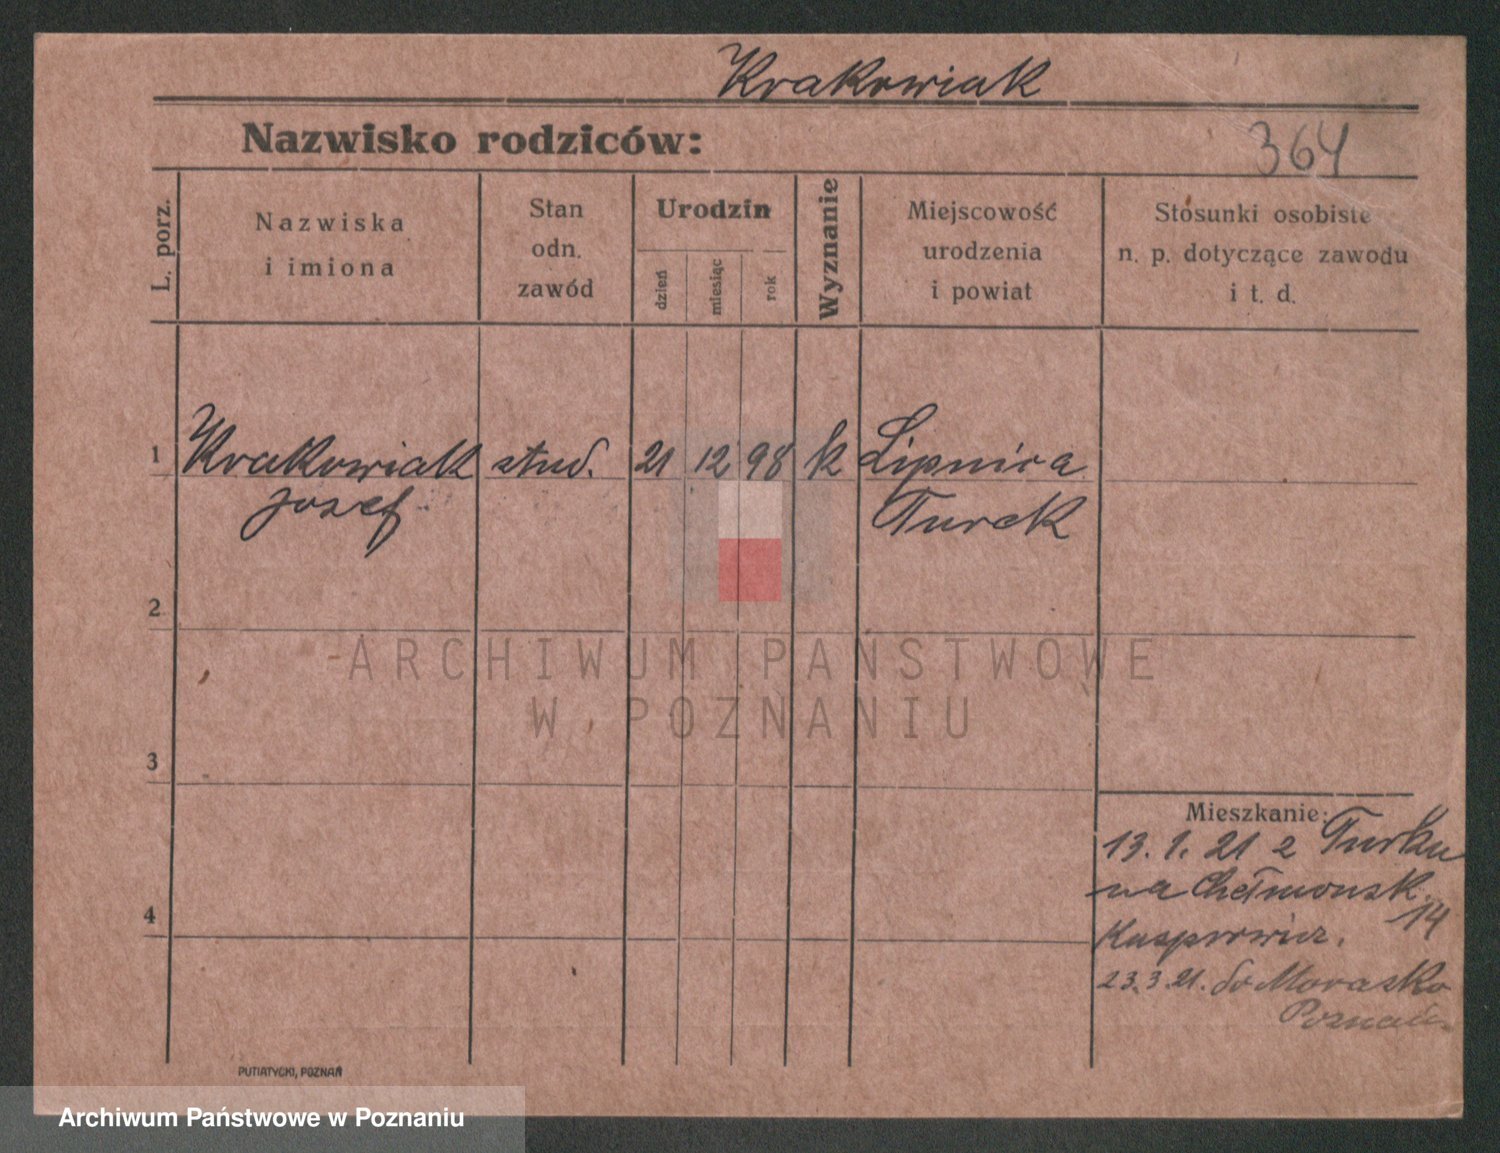 Krakowiak
Nazwisko rodziców:
364
L. porz.
Nazwiska
i imiona
Stan
odn.
zawód
Urodzin
dzień
miesiąc
rok
Wyznanie
Miejscowość
urodzenia
i powiat
Stosunki osobiste
n. p. dotyczące zawodu
i t. d.
1 Krakowiak stud. 21 12 98 k Lipnica
Józef Turek
2
3
4
Mieszkanie:
13. 1. 21 z Turku
na Chełmonsk. 14
Kasprowicz.
23.3.21. do Morasko
Poznań
PUTIATYCKI, POZNAŃ
ARCHIWUM PAŃSTWOWE
W POZNANIU
Archiwum Państwowe w Poznaniu